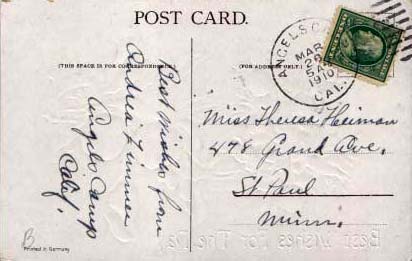 POST CARD.
(THIS SPACE IS FOR CORRESPONDENCE.)
(FOR ADDRESS ONLY.)
Best wishes from
Andrea Zimmer
Angels Camp
Calif.
ANGELS CAMP
MAR
26
5 PM
1910
CAL.
Miss Theresa Heiman
478 Grand Ave.
St Paul
Minn.
B
Printed in Germany